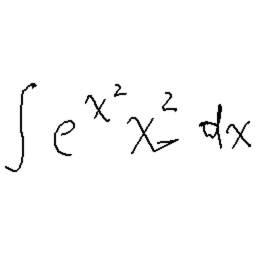 ∫ e^{x^2} x^2 dx